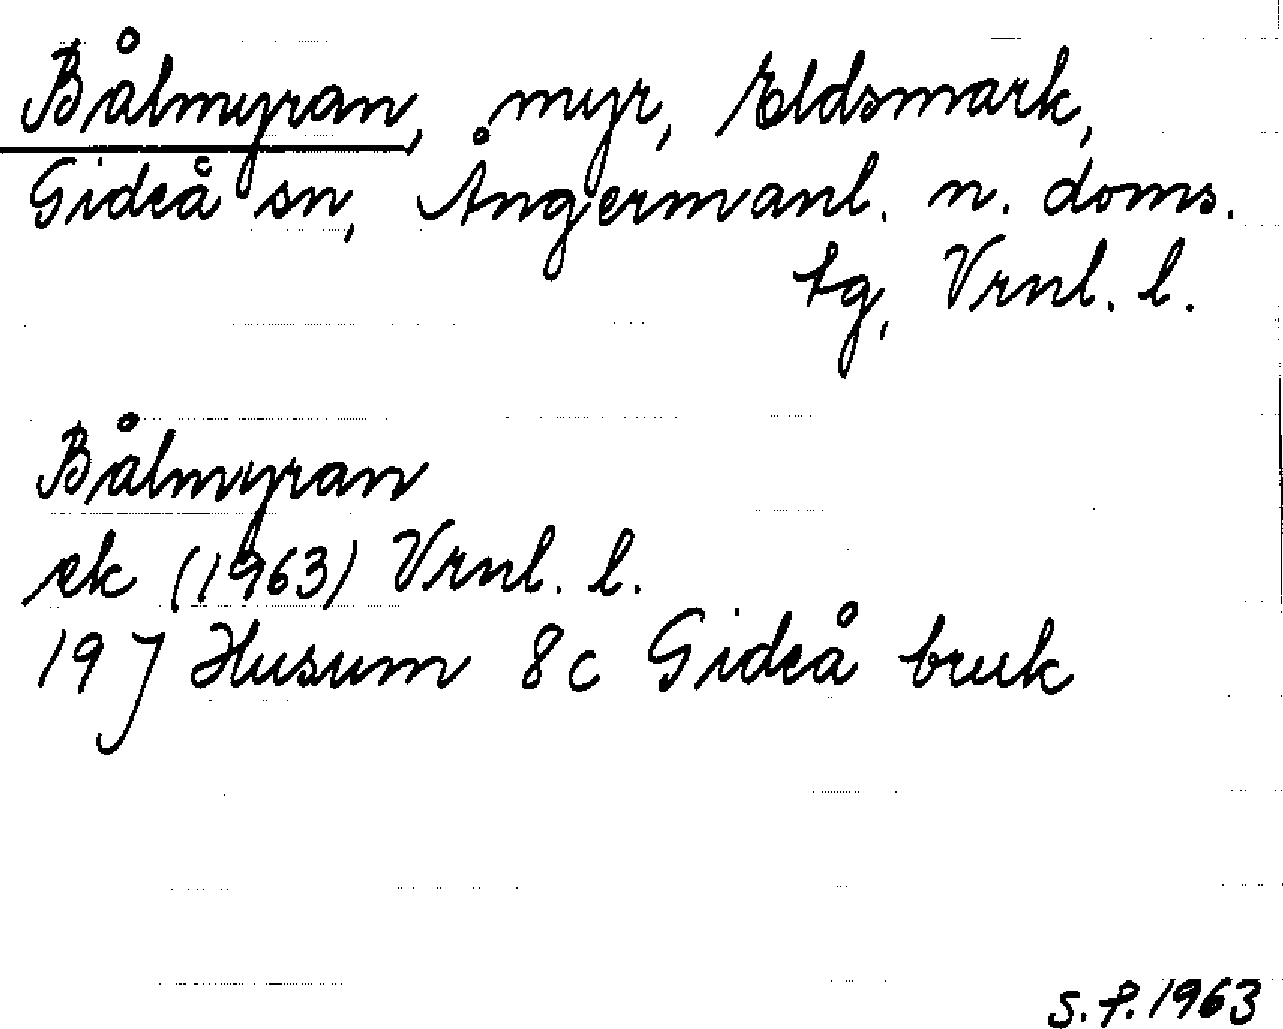 Bålmyran, myr, Eldsmark,
Gideå sn, Ångermanl. n. doms.
tg, Vrnl. l.
Bålmyran
ek (1963) Vrnl. l.
19 J Husum 8c Gideå bruk
S.P. 1963